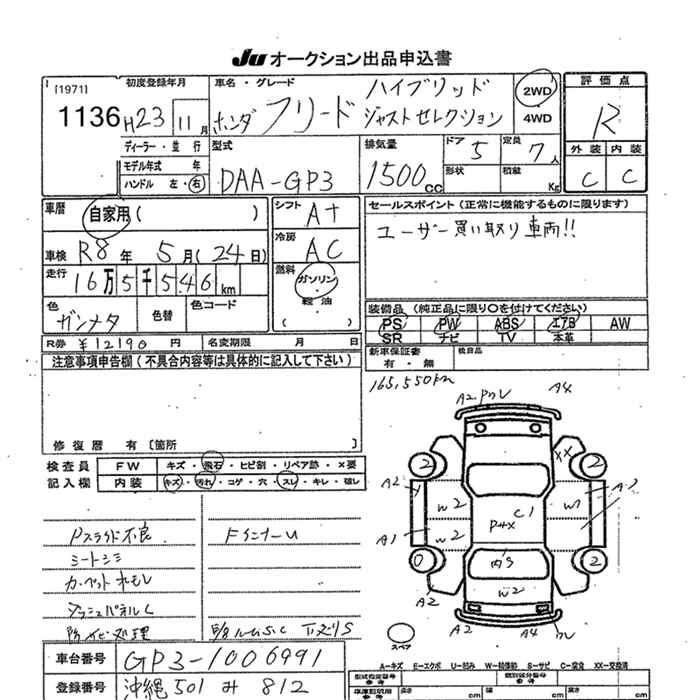 JU オークション出品申込書
[1971] 初度登録年月 車名・グレード ハイブリッド 2WD 評価点
1136 H23 11月 ホンダ フリード ジャストセレクション 4WD R
ディーラー・並行 型式 排気量 ドア 定員 外装 内装
モデル年式 年 5 7人
ハンドル 左・右 DAA-GP3 1500cc 形状 積載 Kg C C
車歴 自家用( ) シフト AT セールスポイント(正常に機能するものに限ります)
車検 R8年 5月(24日) 冷房 AC ユーザー買い取り車両!!
走行 16万5千546km 燃料 ガソリン・軽油
( )
色 ガンメタ 色替 色コード 装備品(純正品に限り○を付けてください)
PS PW ABS エアB AW
SR ナビ TV 本革
R券 ¥12190円 名変期限 月 日 新車保証書 後日品
注意事項申告欄(不具合内容等は具体的に記入して下さい) 有・無
165,550km
修復歴 有〔箇所 〕
検査員 FW キズ・飛石・ヒビ割・リペア跡・×要
記入欄 内装 キズ・汚れ・コゲ・穴・スレ・キレ・破レ
Pスライド不良 FインナーU
シートシミ
カーペット
ダッシュパネル
防サビ処理
A2 A4
A2 XX A3
2 2
W2 C1 W1
A1 W2
0 2
W2
A2 A2
A2 A4
スペア
A-キズ E-エクボ U-凹み W-補修跡 S-サビ C-腐食 XX-交換済
車台番号 GP3-1006991
登録番号 沖縄 501 み 812
長さ cm 幅 cm 高さ cm